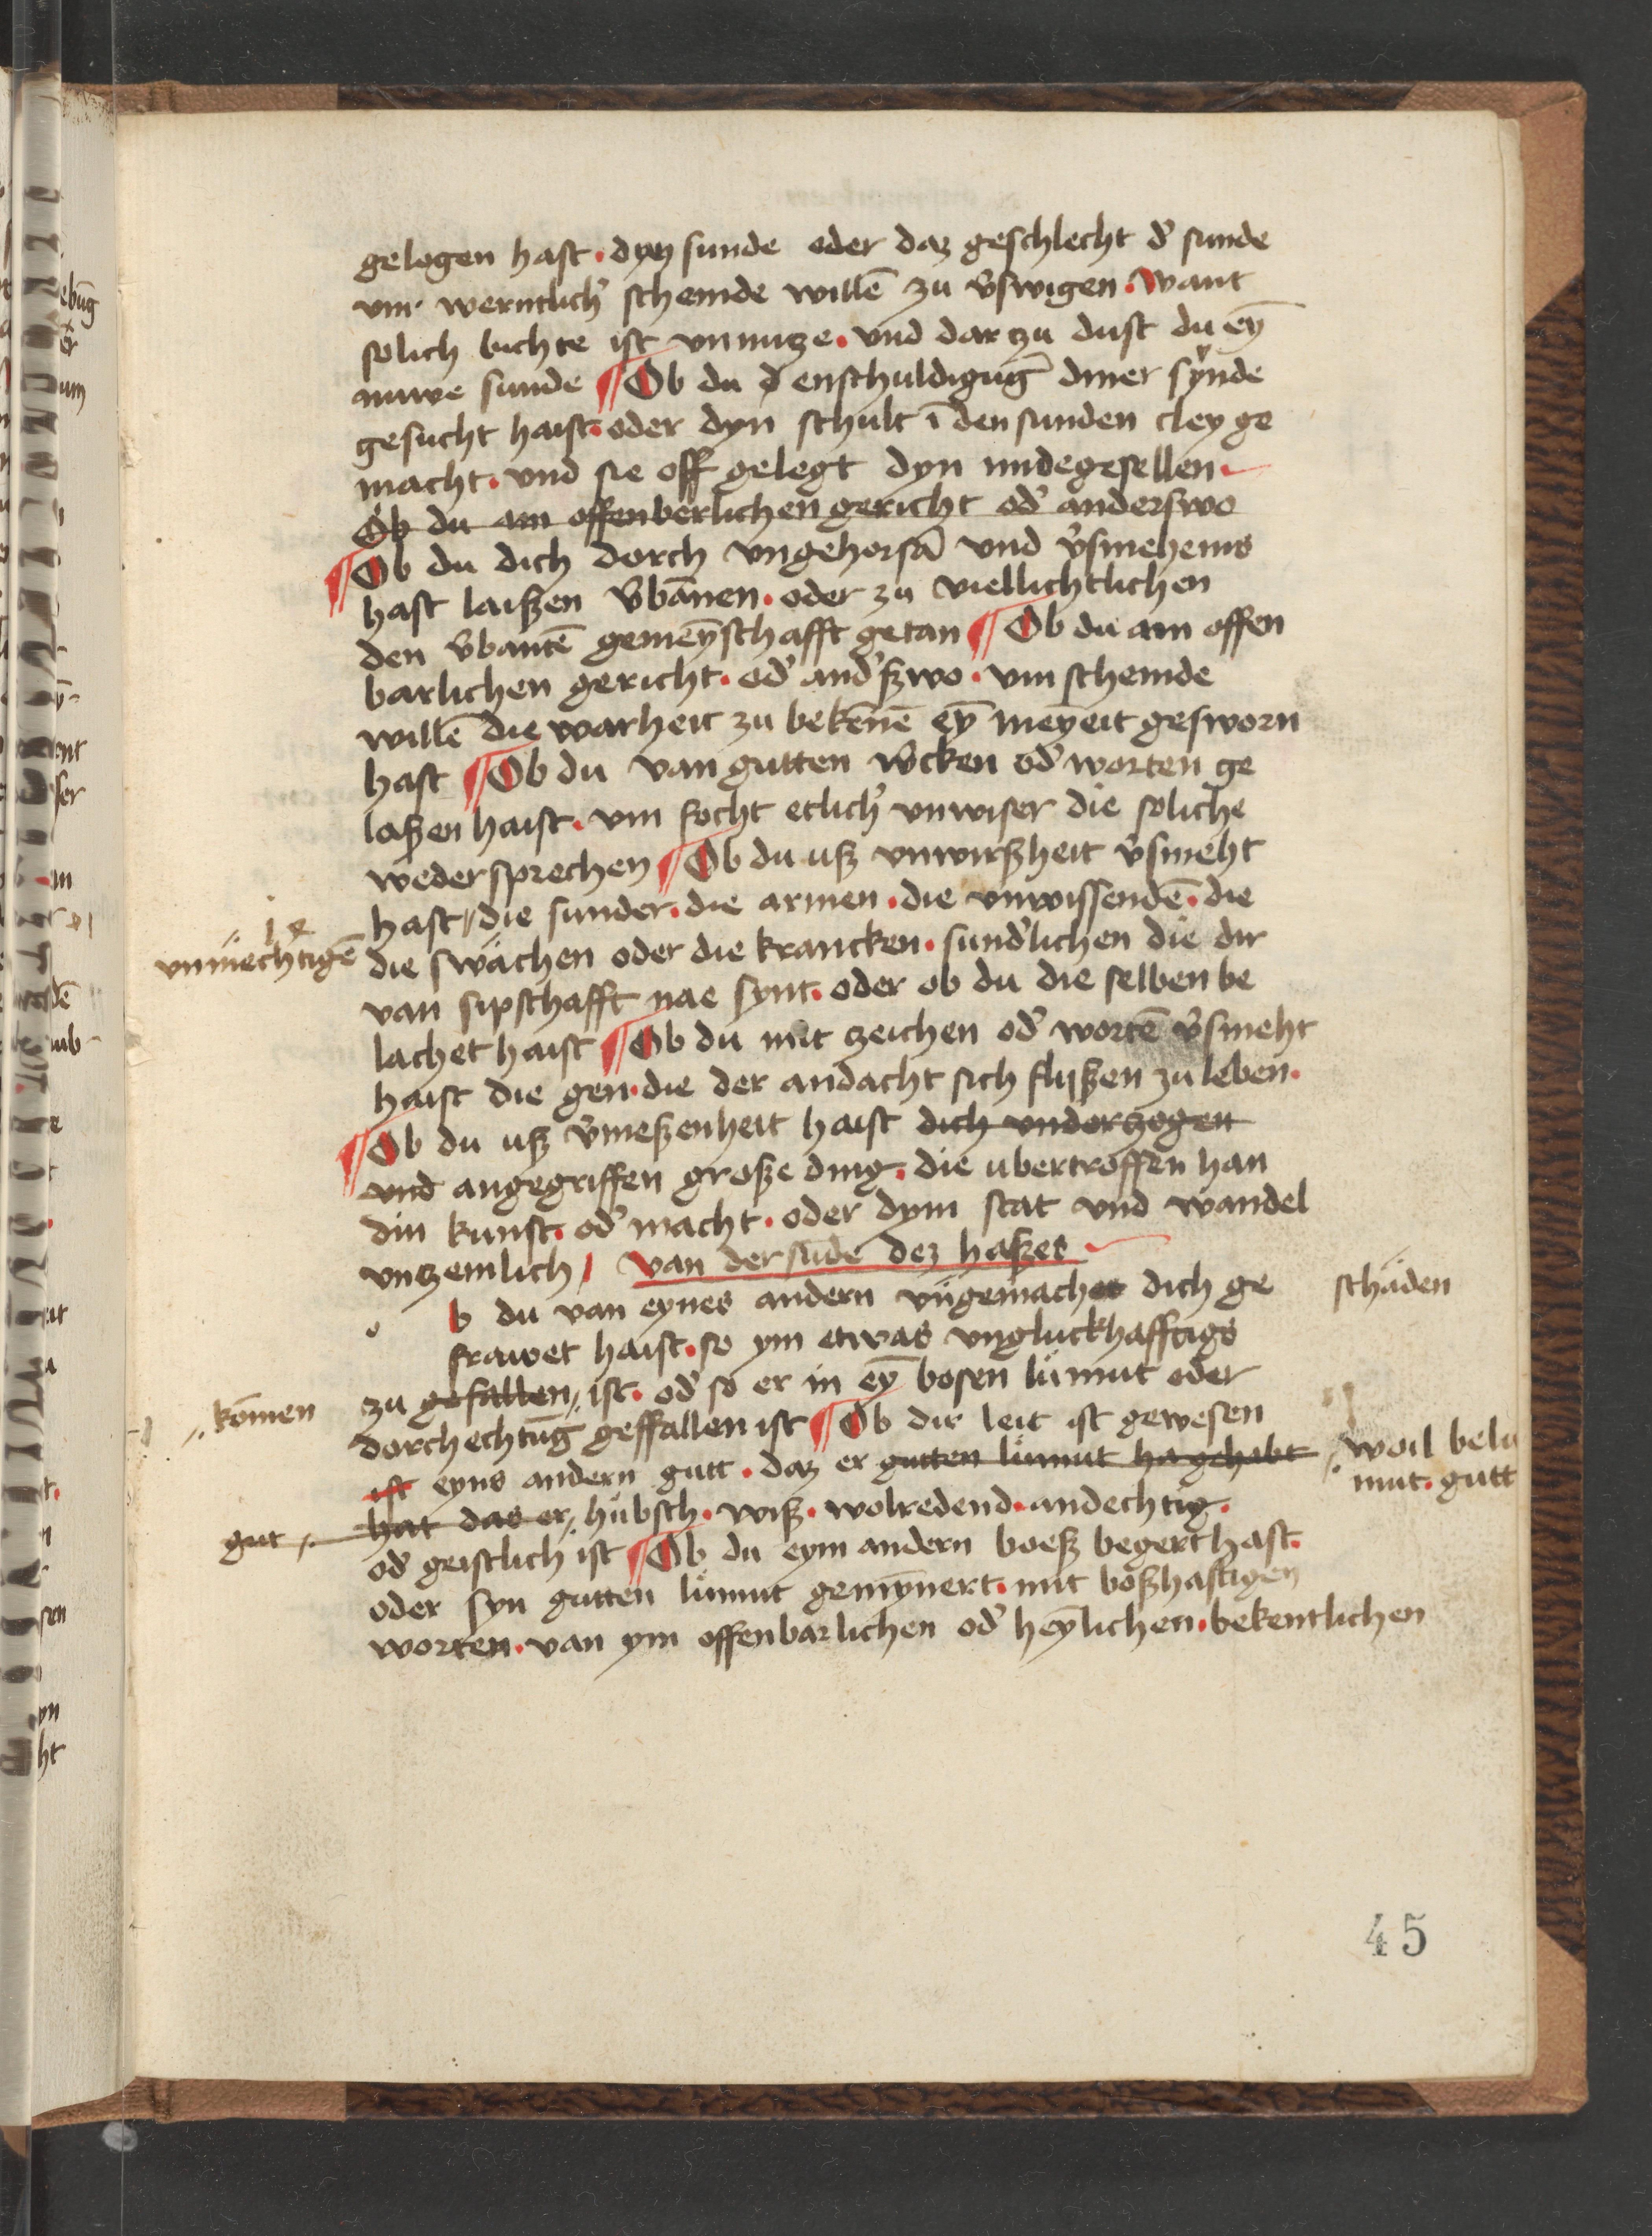 gelogen hast · dyn sunde oder daz geschlecht d' sunde
vm werntlich' schemde willē zu v̓swigen · Want
solich bichte ist vnnutze · vnd dar zu dust du eȳ
nuwe sunde ¶ Ob du enschuldigūg diner synde
gesucht haist · oder dyn schult ī den sunden cley ge
macht · vnd sie off gelegt dyn midegesellen
Ob du am offenberlichen gericht od' anderswo
¶ Ob du dich dorch vngehorsā vnd v̓smehenis
hast laißen v̓bānen · oder zu viellichtlichen
den v̓bantē gemeȳschafft getan ¶ Ob du am offen
barlichen gericht · od' and'ßwo · vm schemde
willē die warheit zu bekēnē eȳ meyeit gesworn
hast ¶ Ob du van gutten w̓cken od' worten ge
laßen haist · vm focht etlich' vnwiser die soliche
wedersprechen ¶ Ob du uß vnwirßheit v̓smeht
hast die sunder · die armen · die vnwissendē · die
vnmechtigē
die swachen oder die krancken · sund'lichen die dir
van sipschafft nae synt · oder ob du die selben be
lachet haist ¶ Ob du mit zeichen od' wortē v̓smeht
haist die gen · die der andacht sich flijßen zu leben ·
¶ Ob du uß v̓meßenheit haist dich vnderzogen
vnd angegriffen große ding · die ubertroffen han
din kunst · od' macht · oder dym stat vnd wandel
vntzemlich / van der sūde dez haßes
o b du van eynes andern vngemaches dich ge
schaden
frawet haist · so ym etwas vngluckhafftigs
zu gefallen ist · od' so er in eȳ bosen lumut oder
komen
dorchechtūg geffallen ist ¶ Ob dir leit ist gewesen
ist eyns andern gutt · daz er gutten lumut ha gehabt
woil belu
mut · gutt
hat das er hubsch · wiß · wolredend · andechtig ·
gut
od' geistlich ist ¶ Ob du eym andern boeß begert hast ·
oder syn gutten lumut gemȳnert · mit boßhaftigen
worten · van ym offenbarlichen od' heȳlichen · bekentlichen
45